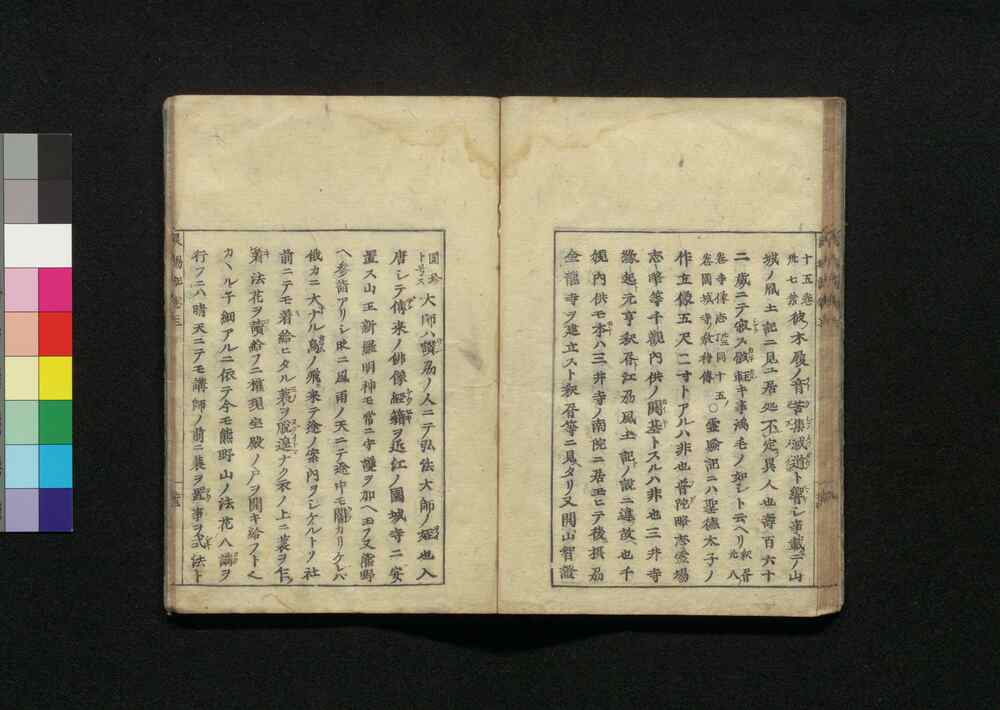 十五巻
廿七葉 彼木履ノ音苦集滅道ト響シ事載テ山
城ノ風土記ニ見ユ居処不定異人也壽百六十
二歳ニテ寂ス敬 キ事鴻毛ノ如シト云ヘリ 釈書
元八
巻寺像志 同十五ノ
巻園城寺教待傳 ○霊驗記ニハ聖德太子ノ
作立像五尺二寸トアルハ非也普陀略志霊場
志略等千觀内供ノ開基トスルハ非也三井寺
縁起元亨釈書江刕風土記ノ説ニ違故也千
觀内供モ本ハ三井寺ノ南院ニ居玉ヒテ後摂刕
金龍寺ヲ建立スト釈書等ニ見タリ又開山智證
圓珍
ト号ス 大師ハ讃刕ノ人ニテ弘法大師ノ姪也入
唐シテ傳来ノ佛像經籍ヲ近江ノ園城寺ニ安
置ス山王新羅明神モ常ニ守護ヲ加ヘ玉フ又熊野
ヘ参詣アリシ時ニ風雨ノ天ニテ途中モ闇カリケレバ
俄カニ大ナル烏ノ飛来テ途ノ案内ヲシケルトゾ社
前ニテモ着給ヒタル蓑ヲ脱遑ナク衣ノ上ニ蓑ヲ乍
着法花ヲ讀給フニ權現宝殿ノ戸ヲ開キ給フト
カヽル子細アルニ依テ今モ熊野山ノ法花八講ヲ
行フニハ晴天ニテモ講師ノ前ニ蓑ヲ置事ヲ式法ト